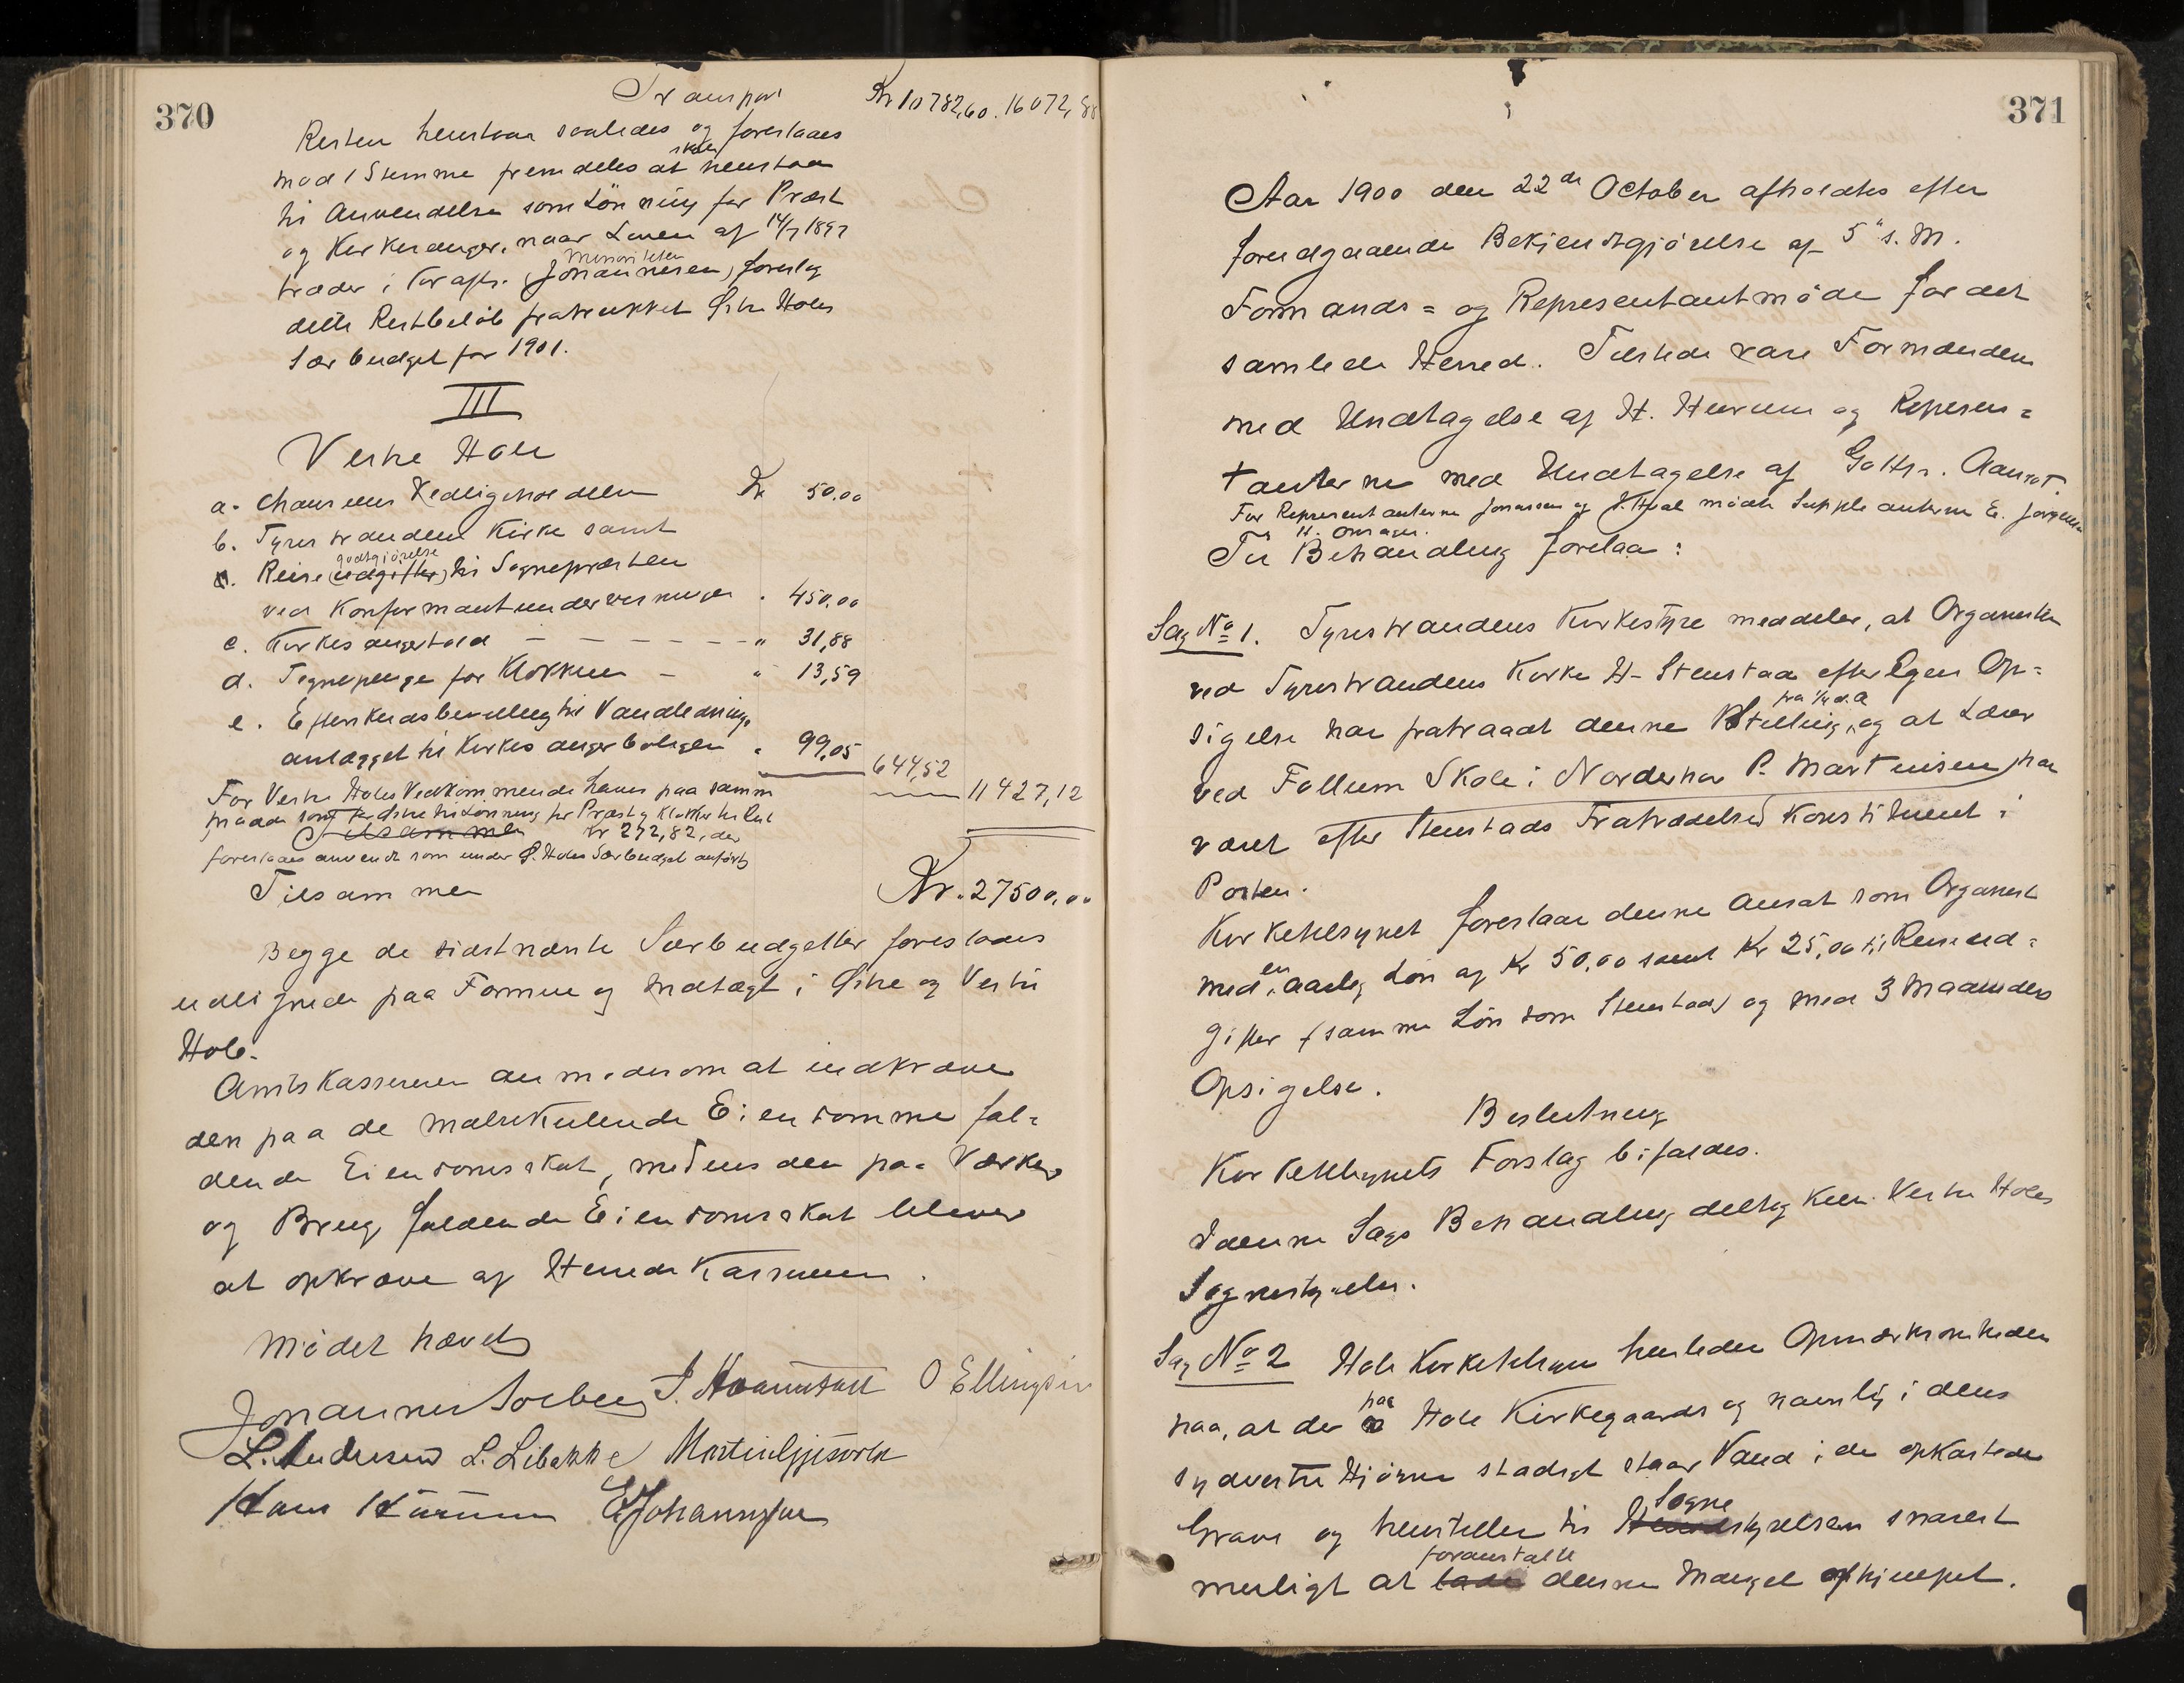 370
Transport Kr 10782,60. 16072,88
Resten henstaar saaledes og foreslaaes
mod 1 Stemme fremdeles at skulle henstaa
til Anvendelse som Lönning for Præst
og Kirkesanger, naar Loven af 14/7 1897
træder i Kraft. (Minoriteten Johannesen) foreslog
dette Restbelöb fratrukket Östre Holes
Særbudget for 1901.
III
Vestre Hole
a. Chausseens Vedligeholdelse Kr 50.00
b. Tyristrandens Kirke samt
Reise(udgifter) godtgjörelse til Sognepræsten
ved Konfirmantundervisningen " 450,00
c. Kirkesangertold — — — — — — " 31,88
d. Tegnepenge for Klokkeren — " 13,59
e. Efterskudsbevilling til Vandlednings
anlægget til Kirkesangerboligen " 99,05 644,52
11427,12
For Vestre Holes Vedkommende haves paa samme
maade som for Östre til Lönning for Præst og Klokker til Rest
Tilsammen Kr 272,82, der
foreslaaes anvendt som under Ö. Holes Særbudget anfört
Tilsammen Kr. 27500,00
Begge de sidstnævnte Særbudgetter foreslaaes
udlignede paa Formue og Indtægt i Östre og Vestre
Hole.
Amtskassereren anmodes om at indkræve
den paa de matrikulerede Eiendomme fal-
dende Eiendomsskat, medens den paa Værker
og Brug faldende Eiendomsskat bliver
at opkræve af Herredskassereren.
Mödet hævet
Johannes Solberg J. Hvamstad O Ellingsen
L. Andresen L. Libakke Martin Gjesvold
Hans Hurum E Johannesen
371
Aar 1900 den 22de October afholdtes efter
foreudgaaende Bekjendtgjörelse af 5" s. M.
Formands= og Representantmöde for det
samlede Herred. Tilstede vare Formændene
med Undtagelse af H. Hurum og Represen=
tanterne med Undtagelse af Guttr. Aamot.
For Representanterne Jonassen og mödte Suppleanterne E. Jörgensen
H. Onsager.
Til Behandling forelaa:
Sag No 1. Tyristrandens Kirkestyre meddeler, at Organisten
ved Tyristrandens Kirke H. Stenstad efter Egen Op=
sigelse har fratraadt denne Stilling fra 1/4 d.A, og at Lærer
ved Follum Skole i Norderhov P. Martinisen har
været efter Stenstads Fratrædelse Konstitueret i
Posten.
Kirketilsynet foreslaar denne ansat som Organist
med en aarlig Lön af Kr 50,00 samt Kr 25,00 til Reiseud=
gifter (samme Lön som Stenstad) og med 3 Maaneders
Opsigelse.
Beslutning
Kirketilsynets Forslag bifaldes.
I denne Sags Behandling deltog kun Vestre Holes
Sognestyrelse.
Sag No 2 Hole Kirketilsyn henleder Opmærksomheden
paa, at der paa Hole Kirkegaard og navnlig i dens
sydvestre Hjörne stadigt staar Vand i de opkastede
Grave og henstiller til Herreds Sognestyrelsen snarest
muligt at lade foranstalte denne Mangel afhjulpet.